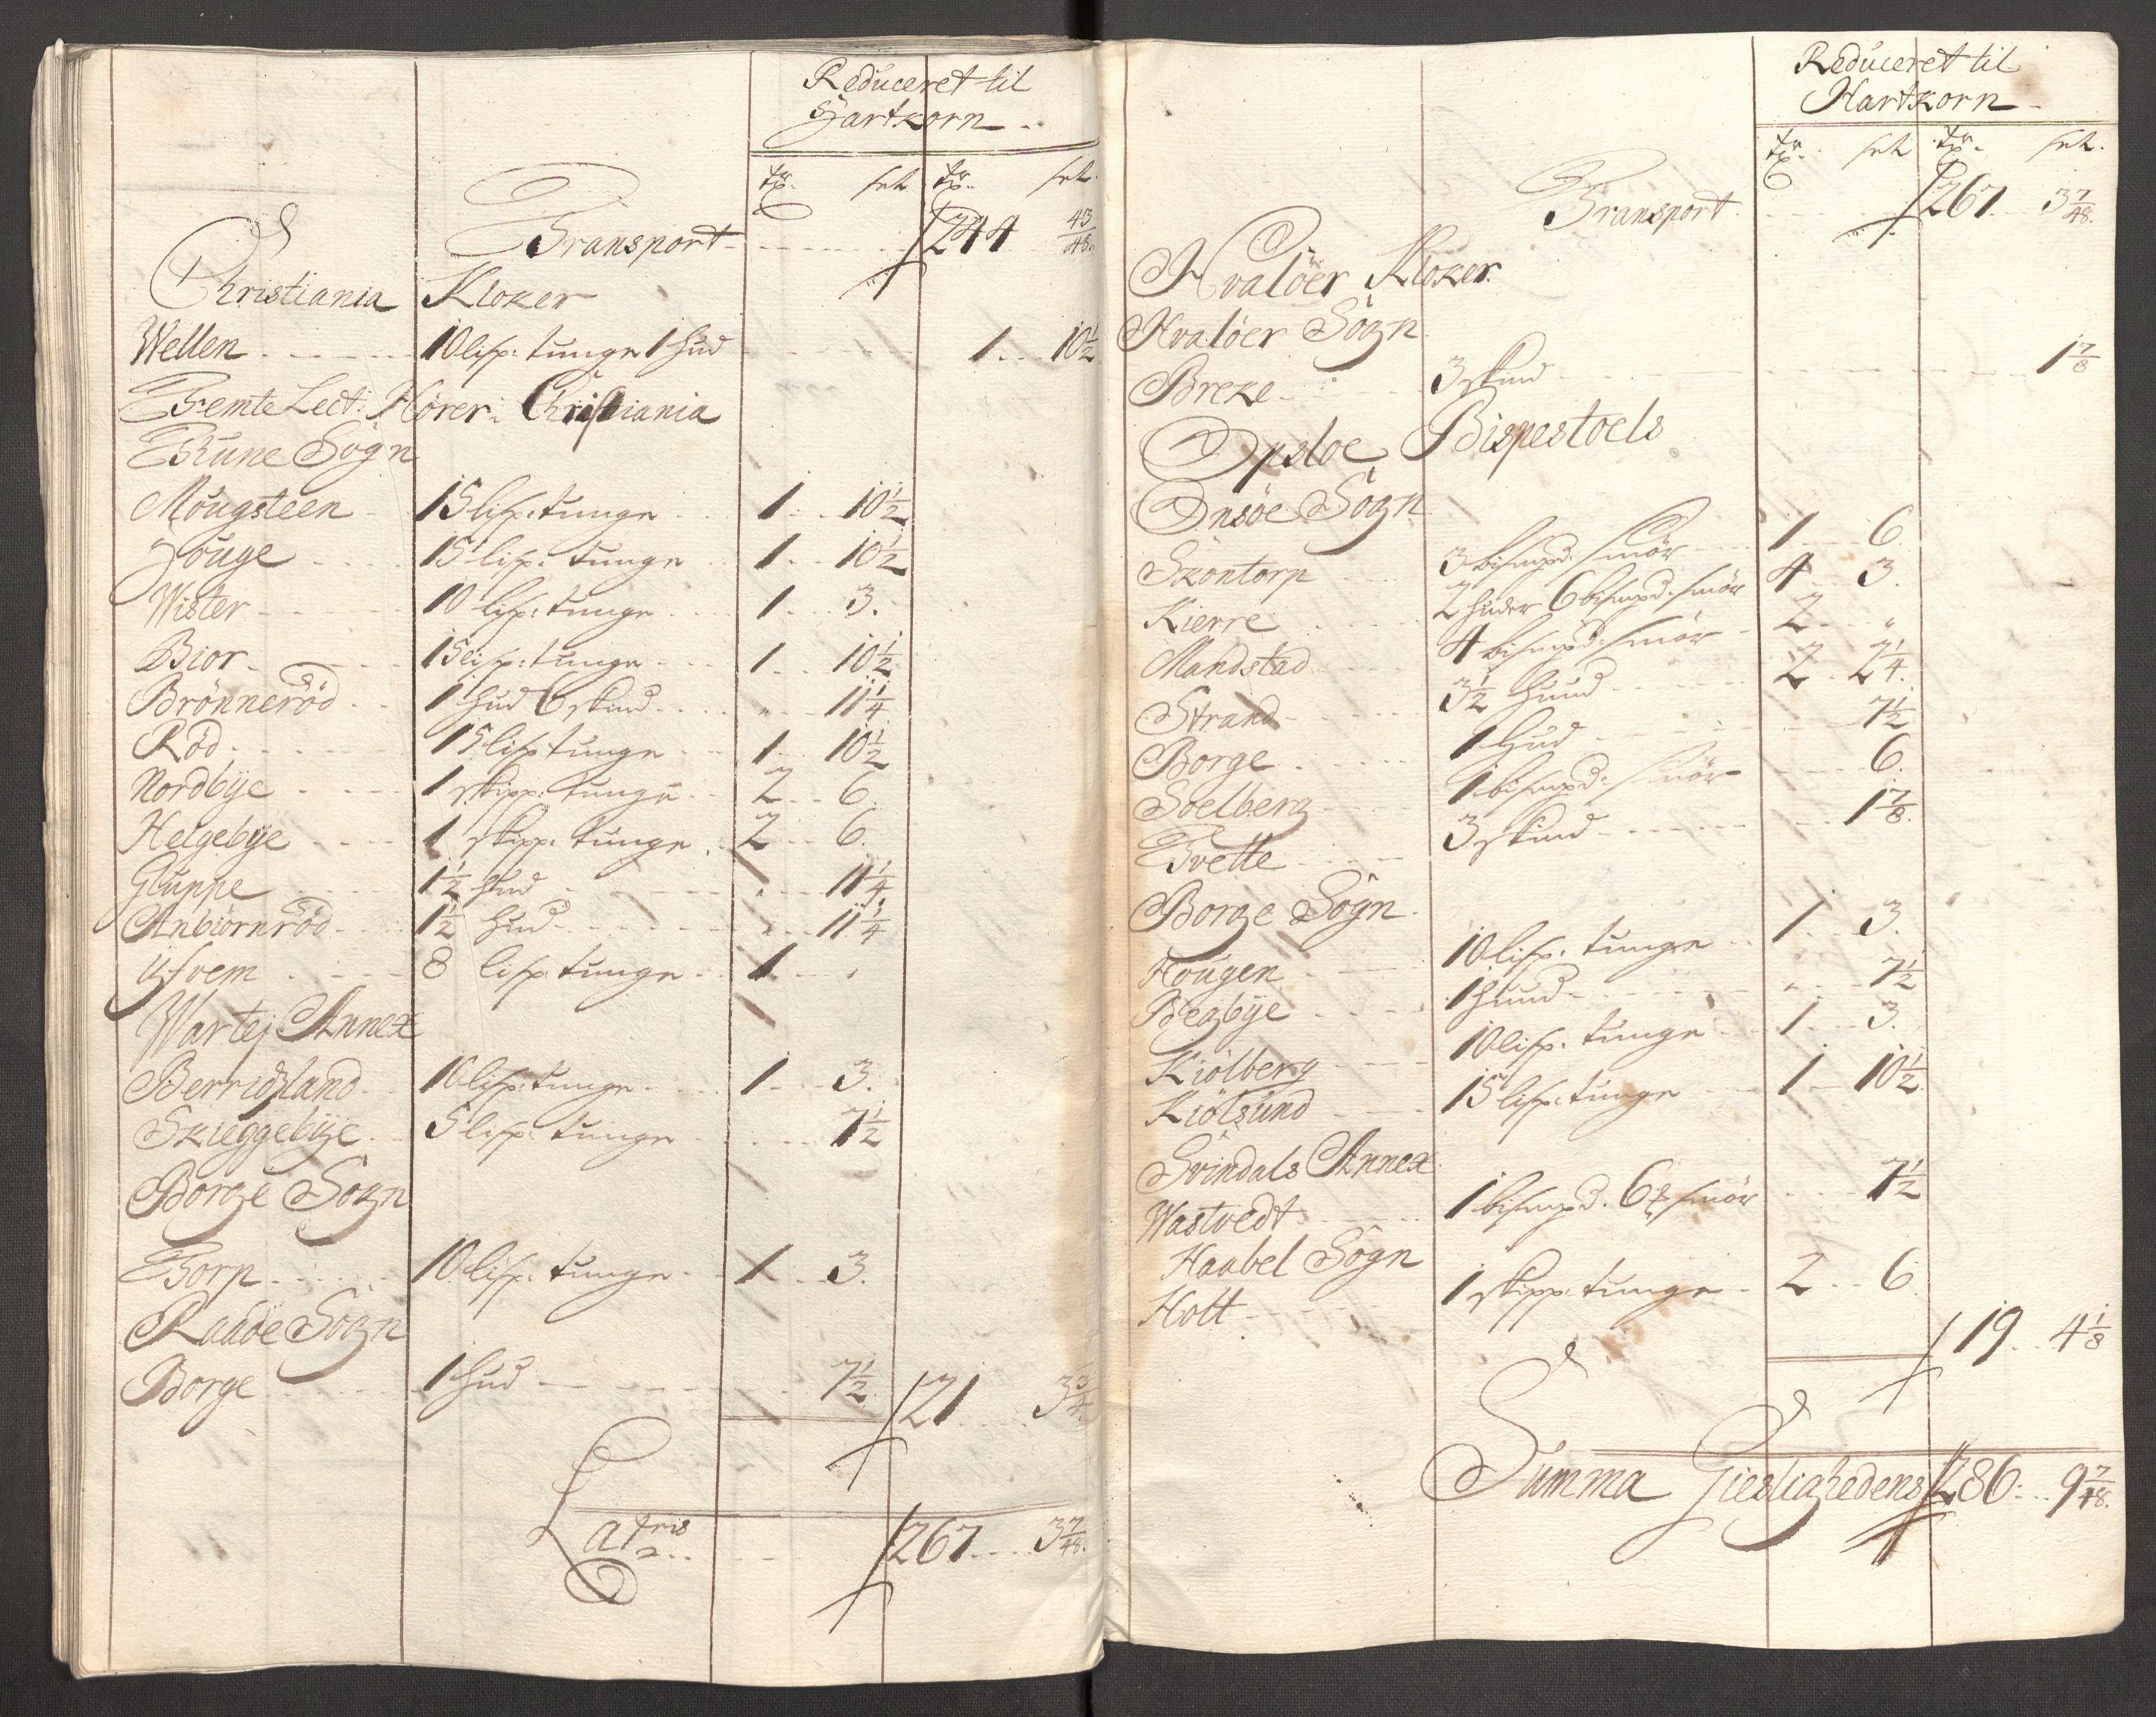 Reduceret til
Hartkorn
tr. sk. tr. sk.
Transport 244 43/48
Christiania Kloker
Wellen 10 lisp: tunge 1 hud 1 10 1/2
Femte Lect: Hører: Christiania
Thune Sogn
Mougsteen 15 lisp: tunge 1 10 1/2
Houge 15 lisp: tunge 1 10 1/2
Wister 10 lisp: tunge 1 3.
Bior 15 lisp: tunge 1 10 1/2
Brönneröd 1 hud 6 skind " 11 1/4
Röd 15 lisp tunge 1 10 1/2
Nordbÿe 1 skipp: tunge 2 6.
Helgebÿe 1 skipp: tunge 2 6.
Gluppe 1 1/2 hud " 11 1/4
Anbiörnröd 1 1/2 hud " 11 1/4
Ulfvem 8 lisp: tunge 1 "
Wartej Annex
10 lisp: tunge 1 3.
Skieggebÿe 5 lisp: tunge 7 1/2
Borge Sogn
Torp 10 lisp: tunge 1 3.
Raade Sogn
Borge 1 hud 7 1/2 21 3 3/4
Lateris 267 3 7/48.
Reduceret til
Hartkorn
tr. sk. tr. sk.
Transport 267 3 7/48.
Hvalöer Kloker
Hvalöer Sogn
Breke 3 skind 1 7/8
Opsloe Bispestoels
Onsöe Sogn
Skontorp 3 bismpd: smör 1 6
Kierre 2 huder 6 bismpd: smör 4 3.
Mandstad 4 bismpd: smör 2 "
Strand 3 1/2 huud 2 2 1/4.
Borge 1 hud 7 1/2
Soelberg 1 bismpd: smör 6.
Tvette 3 skind 1 7/8.
Borge Sogn
Hougen 10 lisp: tunge 1 3.
Begbÿe 1 huud " 7 1/2
Kiölberg 10 lisp: tunge 1 3.
Kiölsund 15 lisp: tunge 1 10 1/2
Svindals Annex
Wastvedt 1 bismpd. 6 smör 7 1/2
Haabel Sogn
Holt 1 skipp: tunge 2 6
19 4 1/8
Summa Giestighedens 286 9 7/48.